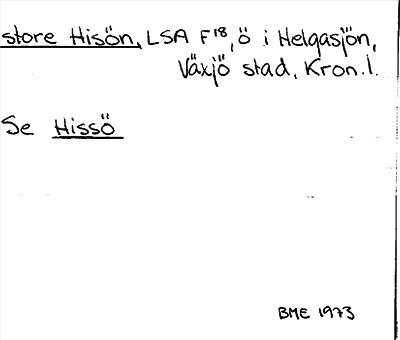 store Hisön, LSA F18, ö i Helgasjön,
Växjö stad, Kron.l.
Se Hissö
BME 1973